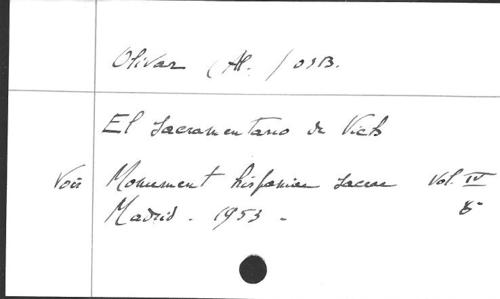 Olivar (Al. / OSB.
El Sacramentario de Vich
Voir Monument hispaniae sacrae Vol. IV
Madrid - 1953 - 8°